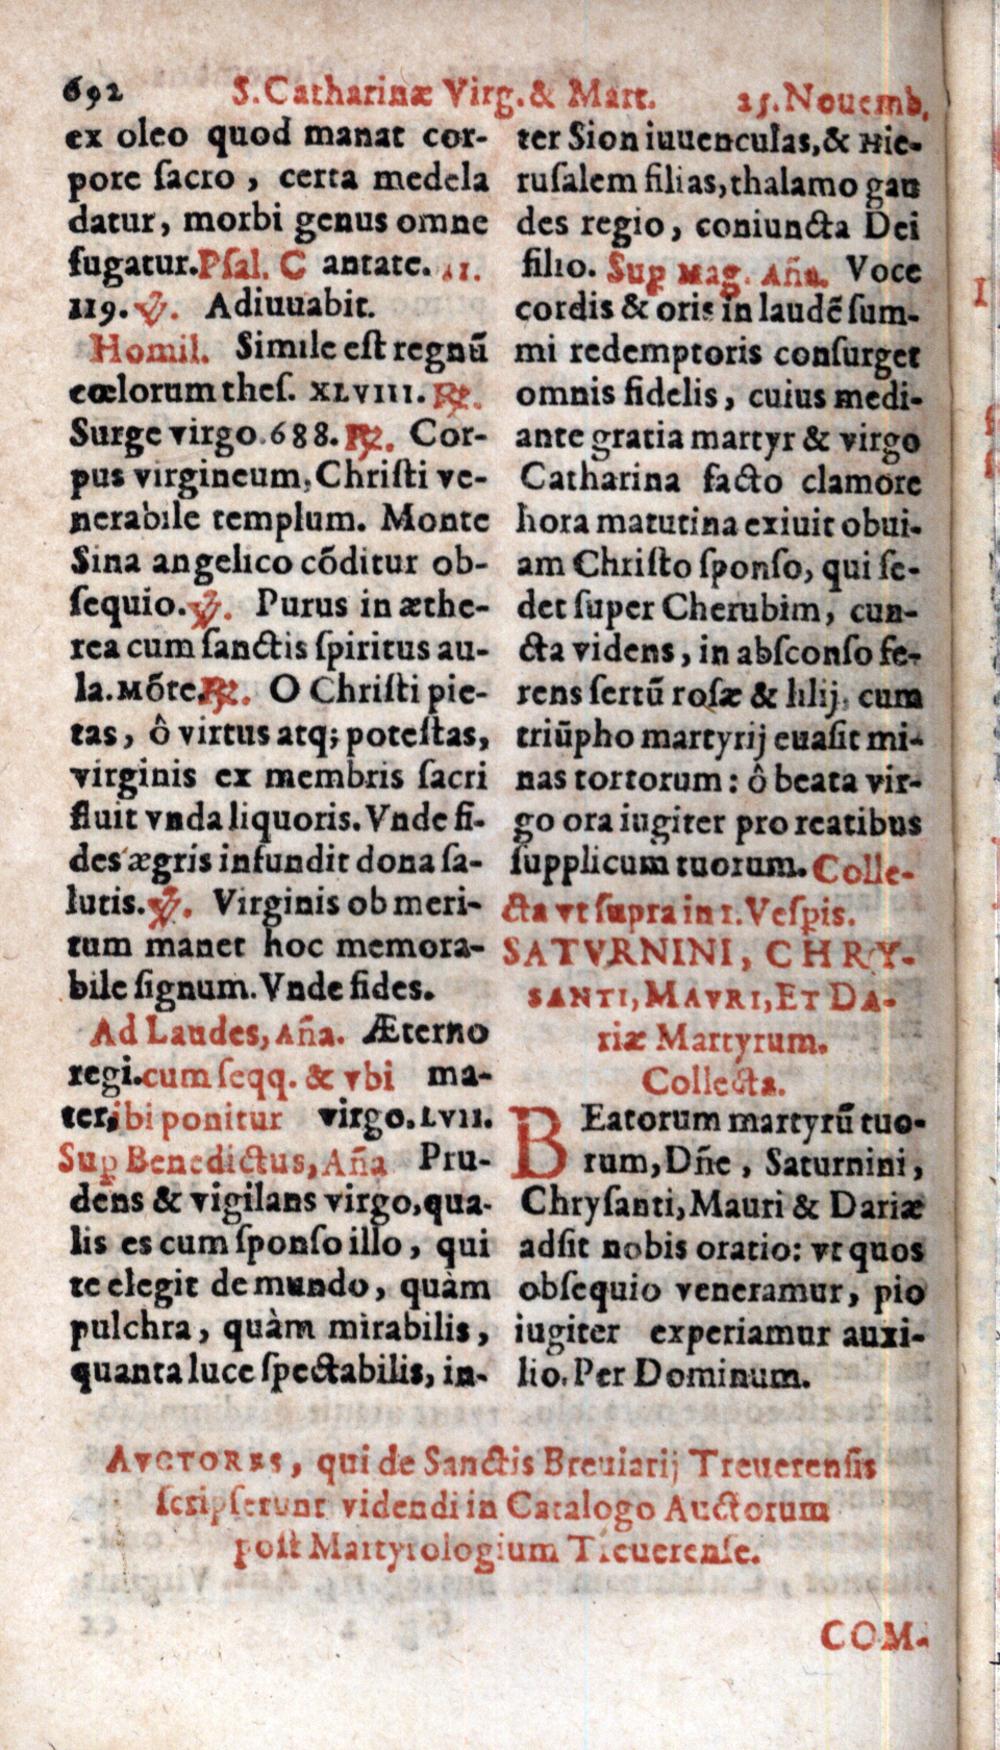 692 S. Catharinæ Virg. & Mart. 25. Nouemb.
ex oleo quod manat cor-
pore ſacro , certa medela
datur, morbi genus omne
fugatur. Pſal. C antate. 11.
119. ℣. Adiuuabit.
Homil. Simile eſt regnū
cœlorum theſ. XLVIII. ℟.
Surge virgo. 688. ℟. Cor-
pus virgineum, Chriſti ve-
nerabile templum. Monte
Sina angelico cōditur ob-
ſequio. ℣. Purus in æthe-
rea cum ſanctis ſpiritus au-
la. Mōte. ℟. O Chriſti pie-
tas, ô virtus atq; poteſtas,
virginis ex membris ſacri
fluit vnda liquoris. Vnde fi-
des ægris infundit dona ſa-
lutis. ℣. Virginis ob meri-
tum manet hoc memora-
bile ſignum. Vnde fides.
Ad Laudes, Añа. Æterno
regi. cum ſeqq. & vbi ma-
ter, ibi ponitur virgo. LVII.
Suꝑ Benedictus, Aña Pru-
dens & vigilans virgo, qua-
lis es cum ſponſo illo, qui
te elegit de mundo, quàm
pulchra, quàm mirabilis,
quanta luce ſpectabilis, in-
ter Sion iuuenculas, & Hie-
ruſalem filias, thalamo gau
des regio, coniuncta Dei
filio. Suꝑ Mag. Aña. Voce
cordis & oris in laudē ſum-
mi redemptoris conſurget
omnis fidelis, cuius medi-
ante gratia martyr & virgo
Catharina facto clamore
hora matutina exiuit obui-
am Chriſto ſponſo, qui ſe-
det ſuper Cherubim, cun-
cta videns, in abſconſo fe-
rens ſertū roſæ & lilij, cum
triūpho martyrij euaſit mi-
nas tortorum: ô beata vir-
go ora iugiter pro reatibus
ſupplicum tuorum. Colle-
cta vt ſupra in 1. Veſpis.
SATVRNINI, CHRY-
SANTI, MAVRI, ET DA-
riæ Martyrum.
Collecta.
BEatorum martyrū tuo-
rum, Dñe , Saturnini,
Chryſanti, Mauri & Dariæ
adſit nobis oratio: vt quos
obſequio veneramur, pio
iugiter experiamur auxi-
lio. Per Dominum.
AVCTORES, qui de Sanctis Breuiarij Treuerenſis
ſcripſerunt videndi in Catalogo Auctorum
poſt Martyrologium Treuerenſe.
COM-